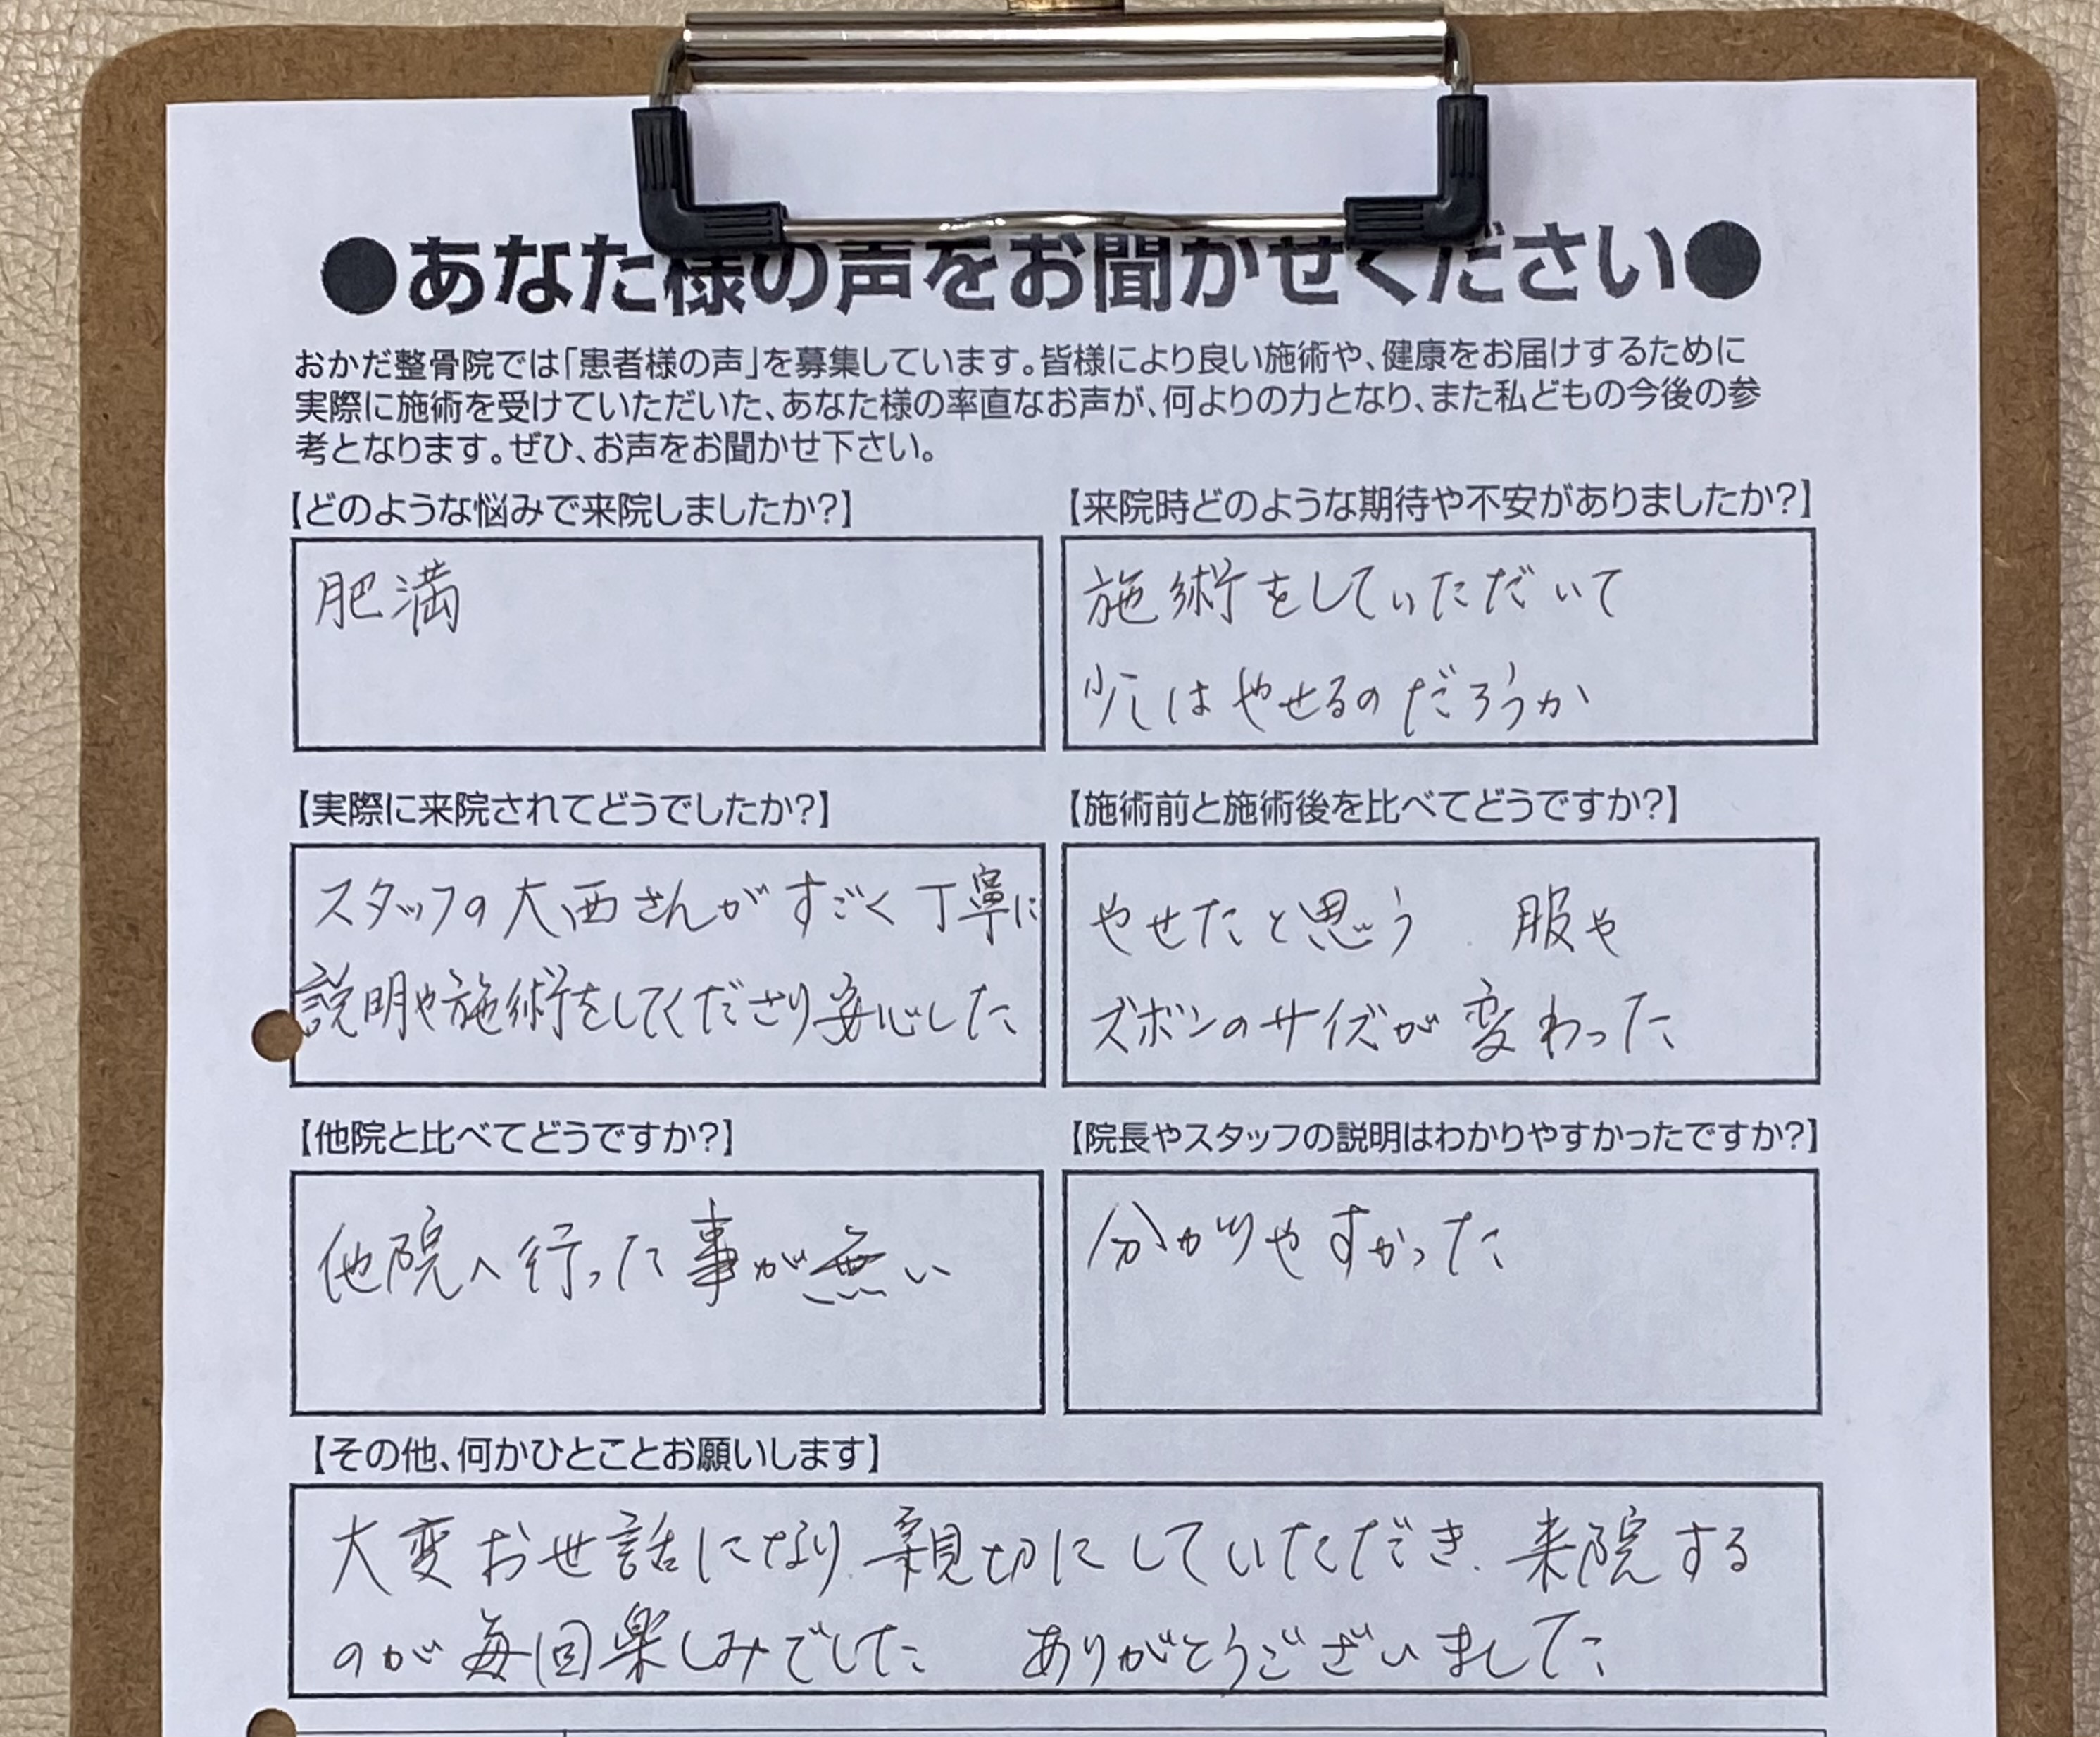 ●あなた様の声をお聞かせください●
おかだ整骨院では「患者様の声」を募集しています。皆様により良い施術や、健康をお届けするために
実際に施術を受けていただいた、あなた様の率直なお声が、何よりの力となり、また私どもの今後の参
考となります。ぜひ、お声をお聞かせ下さい。
【どのような悩みで来院しましたか?】
肥満
【来院時どのような期待や不安がありましたか?】
施術をしていただいて
少しはやせるのだろうか
【実際に来院されてどうでしたか?】
スタッフの大西さんがすごく丁寧に
説明や施術をしてくださり安心した
【施術前と施術後を比べてどうですか?】
やせたと思う 服や
ズボンのサイズが変わった
【他院と比べてどうですか?】
他院へ行った事が無い
【院長やスタッフの説明はわかりやすかったですか?】
分かりやすかった
【その他、何かひとことお願いします】
大変お世話になり、親切にしていただき、来院する
のが毎回楽しみでした ありがとうございました